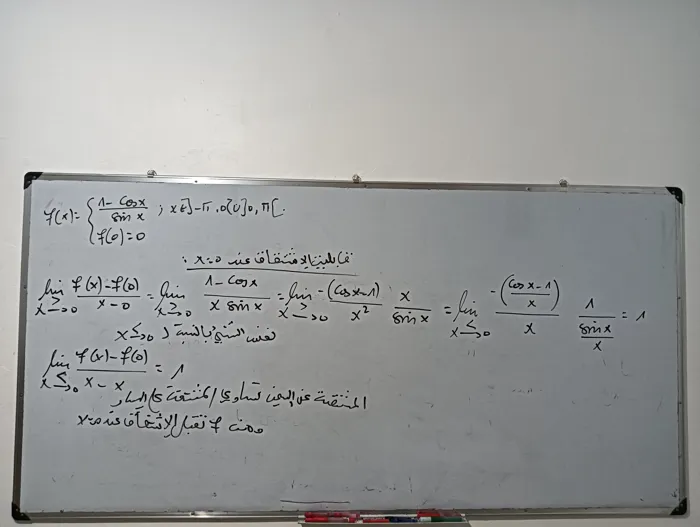 f(x) = { (1 - cos x)/(sin x) ; x ∈ ]-π, 0[ ∪ ]0, π[
f(0) = 0
قابلية الاشتقاق عند x=0 :
lim_{x→^>0} (f(x) - f(0))/(x - 0) = lim_{x→^>0} (1 - cos x)/(x sin x) = lim_{x→^>0} (-(cos x - 1))/(x²) x/(sin x) = lim_{x→^>0} (-((cos x - 1)/x))/x 1/((sin x)/x) = 1
نفس الشيء بالنسبة لـ x→^<0
lim_{x→^<0} (f(x) - f(0))/(x - x) = 1
المشتقة عن اليمين تساوي المشتقة على اليسار
ومنه f تقبل الاشتقاق عند x=0